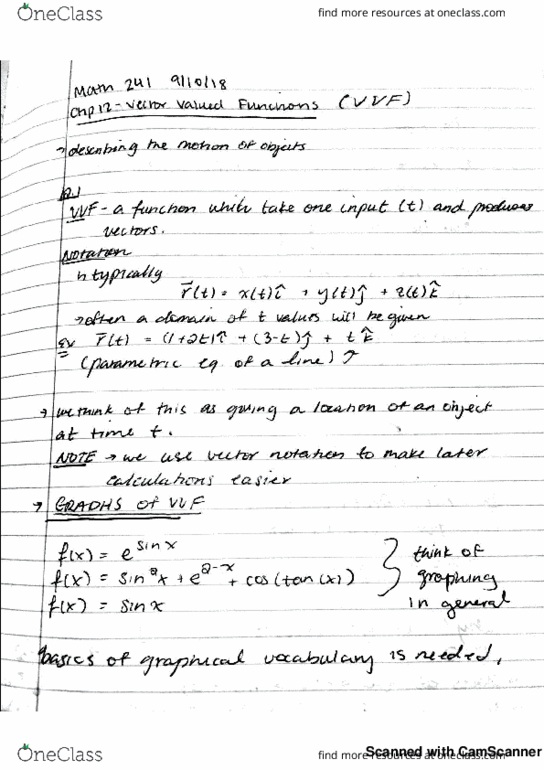 OneClass
find more resources at oneclass.com
Math 241 9/10/18
Chp 12 - Vector Valued Functions (VVF)
→ describing the motion of objects
VVF - a function which take one input (t) and produces
vectors.
Notation
↳ typically
r⃗(t) = x(t)î + y(t)ĵ + z(t)k̂
→ often a domain of t values will be given
Ex r⃗(t) = (1+2t)î + (3-t)ĵ + t k̂
(parametric eq. of a line) ↗
→ we think of this as giving a location of an object
at time t.
NOTE → we use vector notation to make later
calculations easier
→ GRAPHS of VVF
f(x) = e^sin x
f(x) = sin²x + e^2-x + cos(tan(x))
f(x) = sin x
} think of
graphing
in general
basics of graphical vocabulary is needed,
OneClass
find more resources at oneclass.com
Scanned with CamScanner